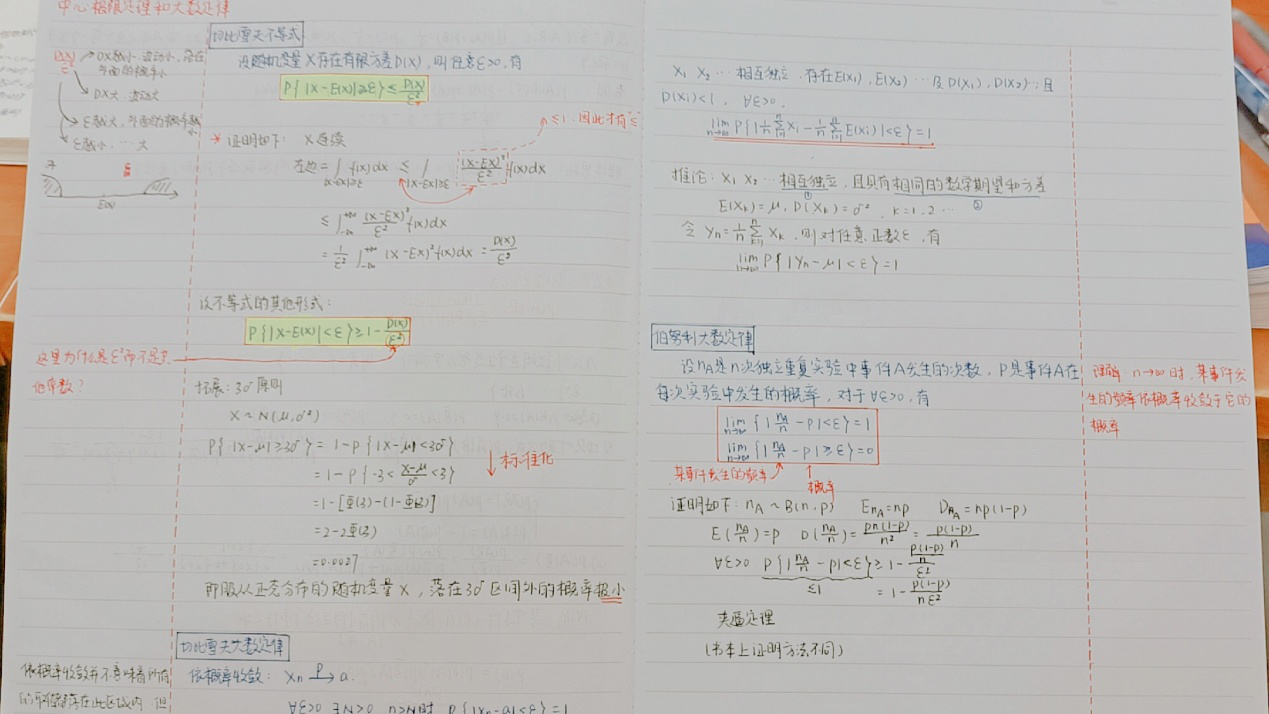 中心极限定理和大数定律
切比雪夫不等式
设随机变量X存在有限方差D(X), 则任意ε>0, 有
P{|X-E(X)|≥ε}≤D(X)/ε²
D(X)/ε²
DX越小, 波动小, 落在
外面的概率小
DX大, 波动大
ε越大, 外面的概率越小
ε越小, … 大
E(X)
≤1, 因此才有"≤"
* 证明如下: X连续
左边=∫_{|X-EX|≥ε} f(x)dx ≤ ∫_{|X-EX|≥ε} (X-EX)²/ε² f(x)dx
≤∫_{-∞}^{+∞} (X-EX)²/ε² f(x)dx
=1/ε² ∫_{-∞}^{+∞} (X-EX)² f(x)dx = D(X)/ε²
该不等式的其他形式:
P{|X-E(X)|<ε}≥1-D(X)/ε²
这里为什么是ε²而不是其
他参数?
拓展: 3σ原则
X~N(μ,σ²)
P{|X-μ|≥3σ}=1-P{|X-μ|<3σ}
=1-P{-3<(X-μ)/σ<3}
标准化
=1-[Φ(3)-(1-Φ(3))]
=2-2Φ(3)
=0.0027
即服从正态分布的随机变量X, 落在3σ区间外的概率极小
切比雪夫大数定律
依概率收敛: Xn →P a.
∀ε>0 ∃N>0 n>N时 P{|Xn-a|<ε}=1
依概率收敛并不意味着所有
的取值都落在此区域内, 但
X₁ X₂ … 相互独立, 存在E(X₁), E(X₂) … 及D(X₁), D(X₂) …; 且
D(Xi)<l, ∀ε>0,
lim_{n→∞} P{|1/n Σ_{i=1}^{n} Xi - 1/n Σ_{i=1}^{n} E(Xi)|<ε}=1
推论: X₁ X₂ … 相互独立, 且具有相同的数学期望和方差
① ②
E(Xk)=μ, D(Xk)=σ², k=1,2…
令 Yn=1/n Σ_{k=1}^{n} Xk, 则对任意正数ε, 有
lim_{n→∞} P{|Yn-μ|<ε}=1
伯努利大数定律
设nA是n次独立重复实验中事件A发生的次数, P是事件A在
每次实验中发生的概率, 对于∀ε>0, 有
lim_{n→∞} {|nA/n - p|<ε}=1
lim_{n→∞} {|nA/n - p|≥ε}=0
某事件发生的频率 概率
理解: n→∞时, 某事件发
生的频率依概率收敛于它的
概率
证明如下: nA~B(n,p) EnA=np DnA=np(1-p)
E(nA/n)=p D(nA/n)=pn(1-p)/n²=p(1-p)/n
∀ε>0 P{|nA/n - p|<ε}≥1-(p(1-p)/n)/ε²
≤1 =1-p(1-p)/nε²
夹逼定理
(书本上证明方法不同)